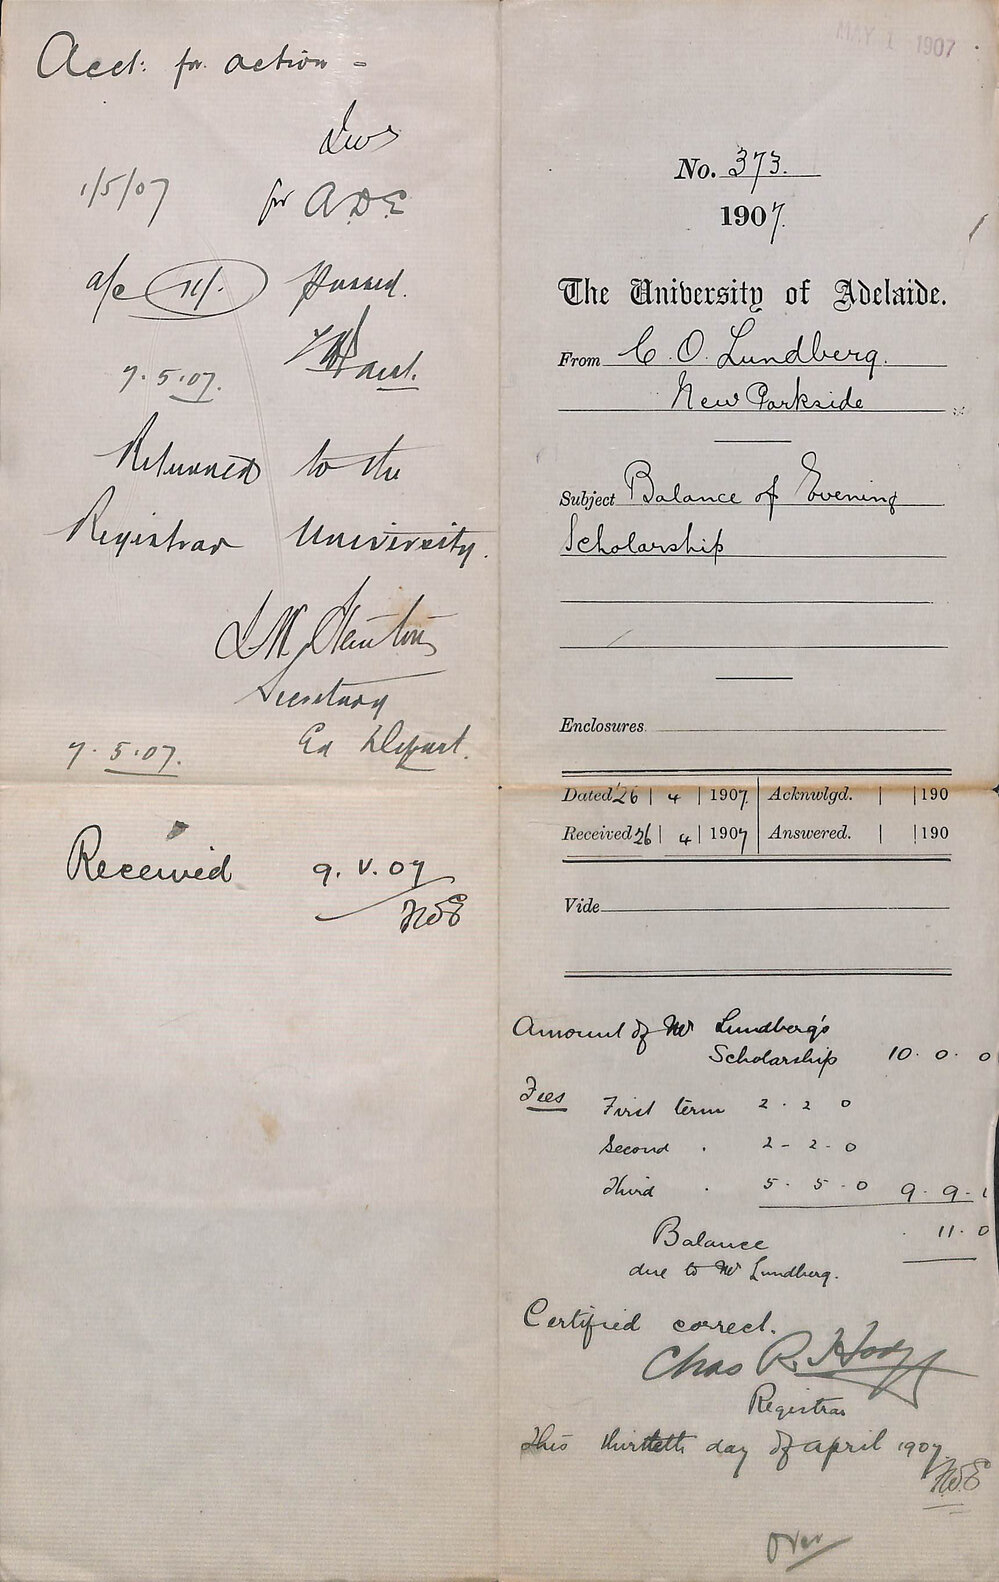 Acct: for action -
Jws
1/5/07 for A.D.E
a/c 11/. passed.
7.5.07. Acct.
Returned to the
Registrar University.
Secretary
7.5.07. Ed Depart.
Received 9.V.07
MAY 1 1907
No. 373.
1907.
The University of Adelaide.
From C. O. Lundberg.
New Parkside
Subject Balance of Evening
Scholarship
Enclosures
Dated 26 | 4 | 1907 Acknwlgd. | | 190
Received 26 | 4 | 1907 Answered. | | 190
Vide
Amount of Mr Lundberg's
Scholarship 10. 0. 0
Fees First term 2. 2 0
Second . 2 - 2 - 0
Third . 5. 5. 0 9. 9.
Balance . 11. 0
due to Mr Lundberg.
Certified correct.
Chas R. Hodge
Registrar
This thirtieth day of April 1907.
over